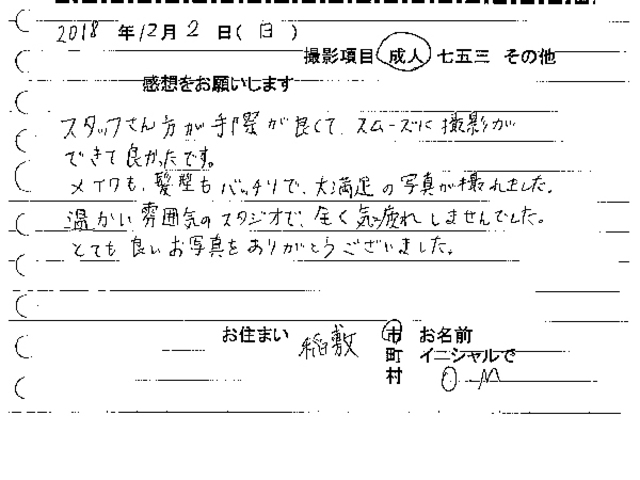 2018 年 12 月 2 日 ( 日 )
撮影項目 成人 七五三 その他
感想をお願いします
スタッフさん方が手際が良くて、スムーズに撮影が
できて良かったです。
メイクも、髪型もバッチリで、大満足の写真が撮れました。
温かい雰囲気のスタジオで、全く気疲れしませんでした。
とても良いお写真をありがとうございました。
お住まい 稲敷 市 お名前
町 イニシャルで
村 O M